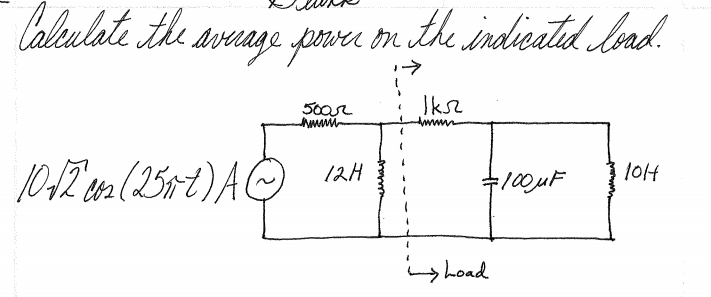 Calculate the average power on the indicated load.
500Ω
1kΩ
10√2 cos(25πt) A
12H
100μF
10H
Load